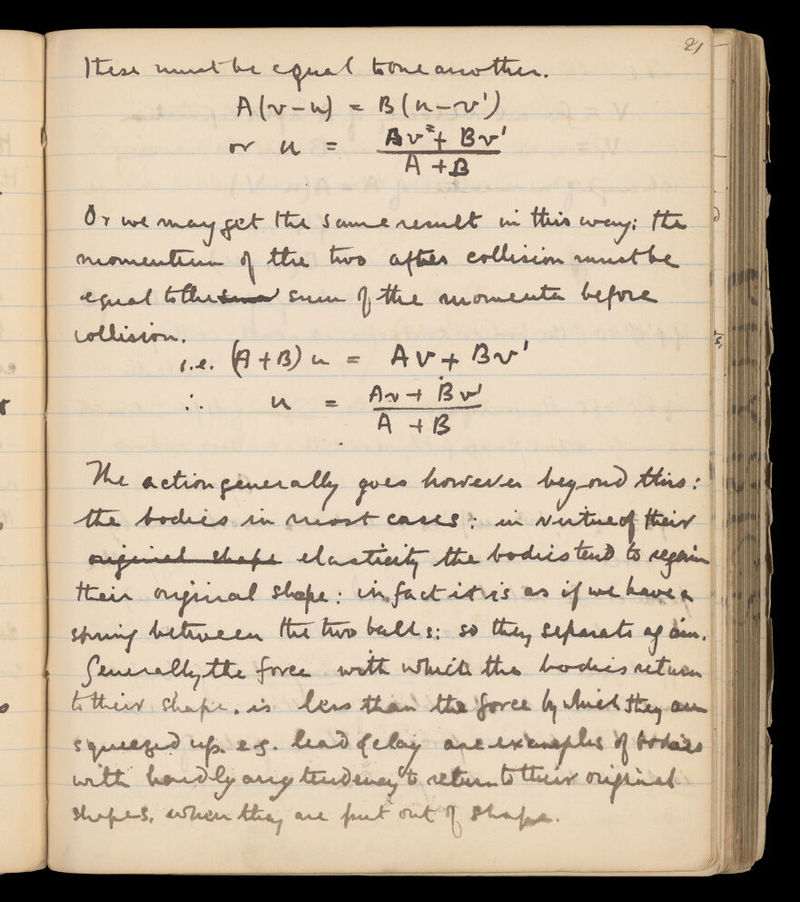 21
These must be equal to one another.
A(v-u) = B(u-v')
or u = Av + Bv'
A + B
Or we may get the same result in this way: the
momentum of the two after collision must be
equal to the sum of the momenta before
collision.
i.e. (A+B) u = Av + Bv'
∴ u = Av + Bv'
A + B
The action generally goes however beyond this:
the bodies in most cases: in virtue of their
original shape elasticity the bodies tend to regain
their original shape: in fact it is as if we have a
spring between the two balls: so they separate again.
Generally the force with which the bodies return
to their shape, is less than the force by which they are
squeezed up. e.g. lead & clay are examples of bodies
with hardly any tendency to return to their original
shapes, when they are put out of shape.